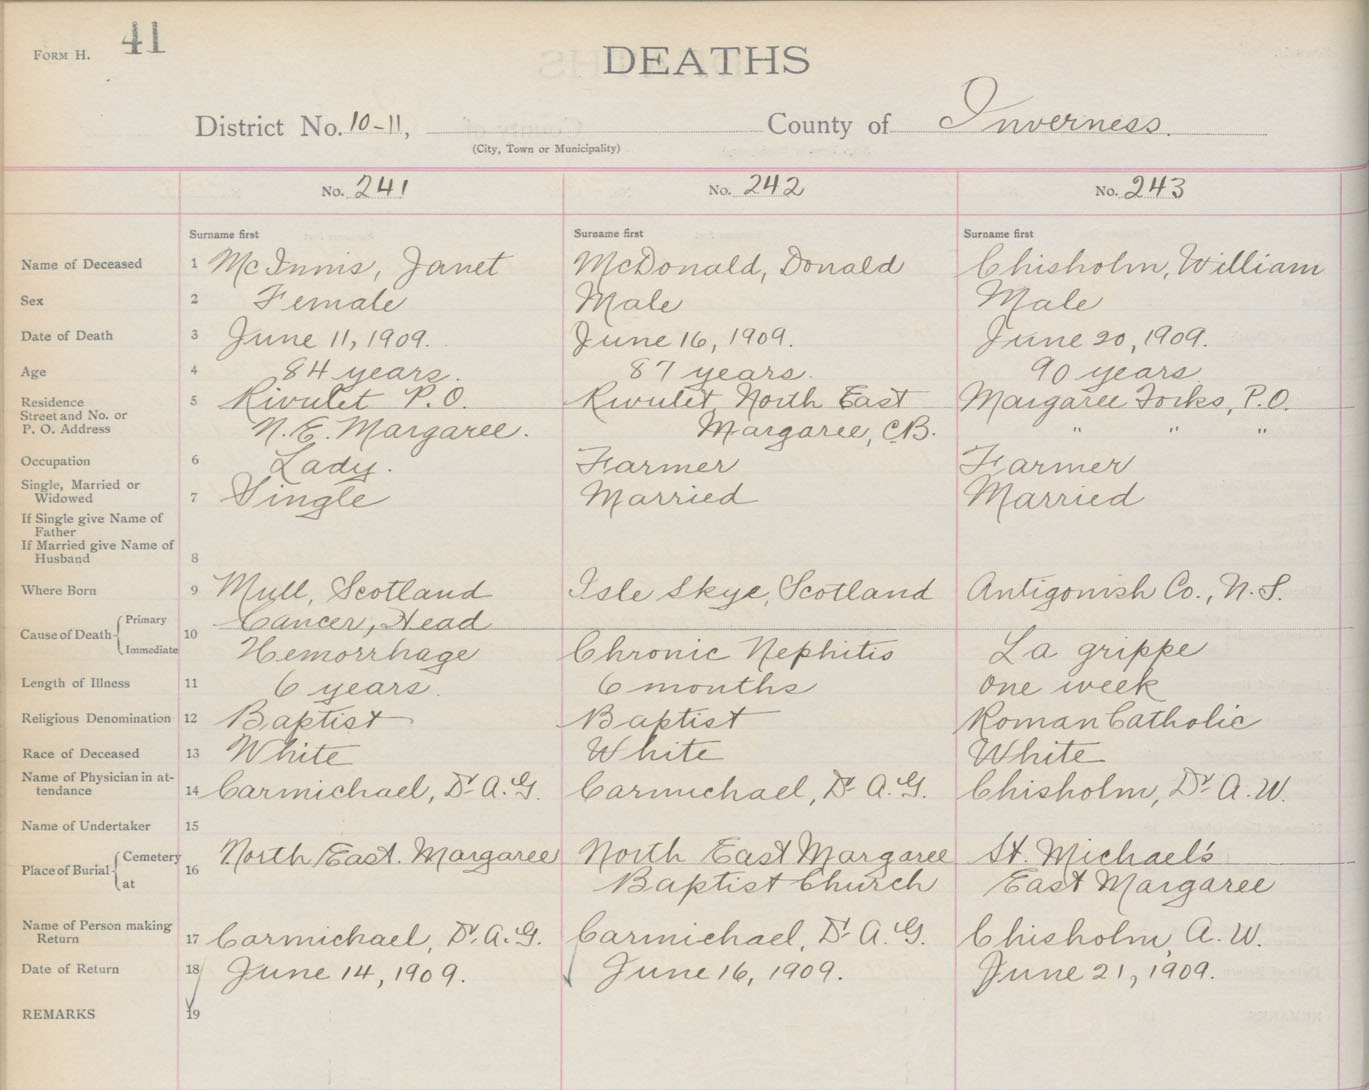 Form H. 41
DEATHS
District No. 10-11, County of Inverness.
(City, Town or Municipality)
No. 241 No. 242 No. 243
Surname first Surname first Surname first
Name of Deceased 1 McInnis, Janet McDonald, Donald Chisholm, William
Sex 2 Female Male Male
Date of Death 3 June 11, 1909. June 16, 1909. June 20, 1909.
Age 4 84 years. 87 years. 90 years
Residence 5 Rivulet P.O. Rivulet North East Margaree Forks, P.O.
Street and No. or
P. O. Address N.E. Margaree. Margaree, C.B. " " "
Occupation 6 Lady. Farmer Farmer
Single, Married or
Widowed 7 Single Married Married
If Single give Name of
Father
If Married give Name of
Husband 8
Where Born 9 Mull, Scotland Isle Skye, Scotland Antigonish Co., N.S.
Cause of Death Primary 10 Cancer, Head
Immediate Hemorrhage Chronic Nephitis La grippe
Length of Illness 11 6 years. 6 months one week
Religious Denomination 12 Baptist Baptist Roman Catholic
Race of Deceased 13 White White White
Name of Physician in at-
tendance 14 Carmichael, Dr. A.G. Carmichael, Dr. A.G. Chisholm, Dr. A.W.
Name of Undertaker 15
Place of Burial Cemetery 16 North East. Margaree North East Margaree St. Michael's
at Baptist Church East Margaree
Name of Person making
Return 17 Carmichael, Dr. A.G. Carmichael, Dr. A.G. Chisholm, A.W.
Date of Return 18 June 14, 1909. June 16, 1909. June 21, 1909.
REMARKS 19